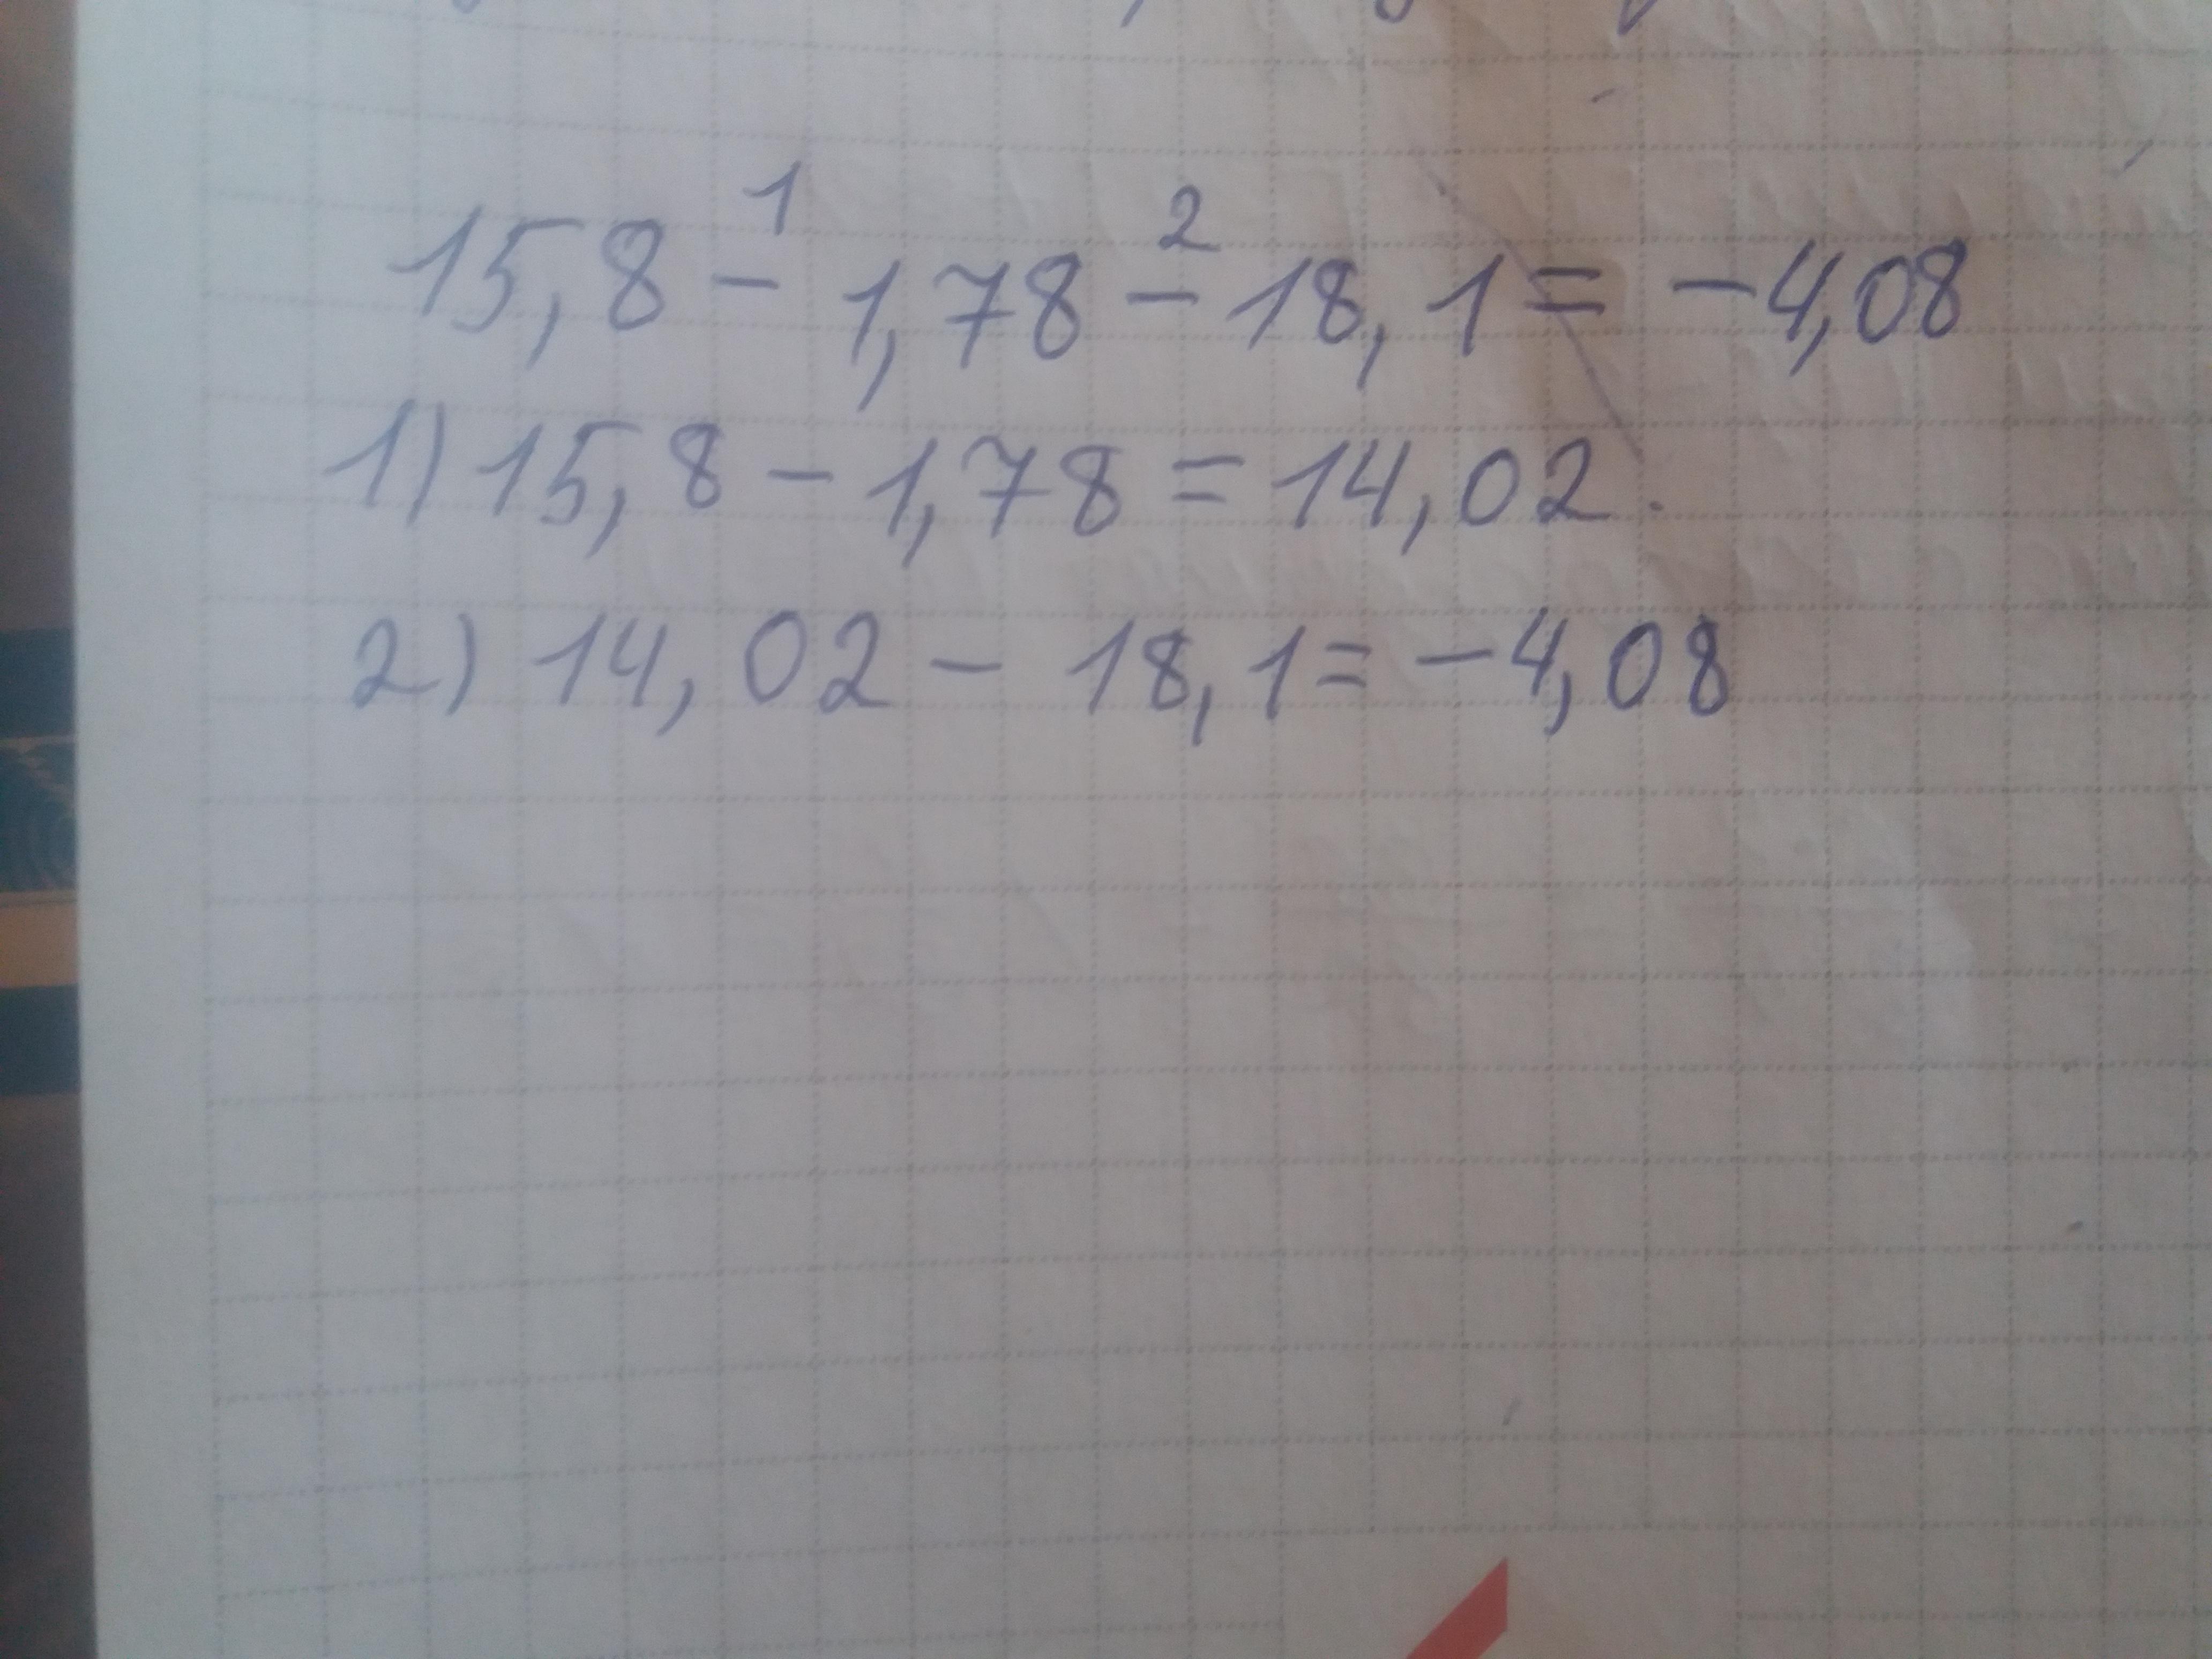 15,8 - 1,78 - 18,1 = -4,08
1) 15,8 - 1,78 = 14,02.
2) 14,02 - 18,1 = -4,08